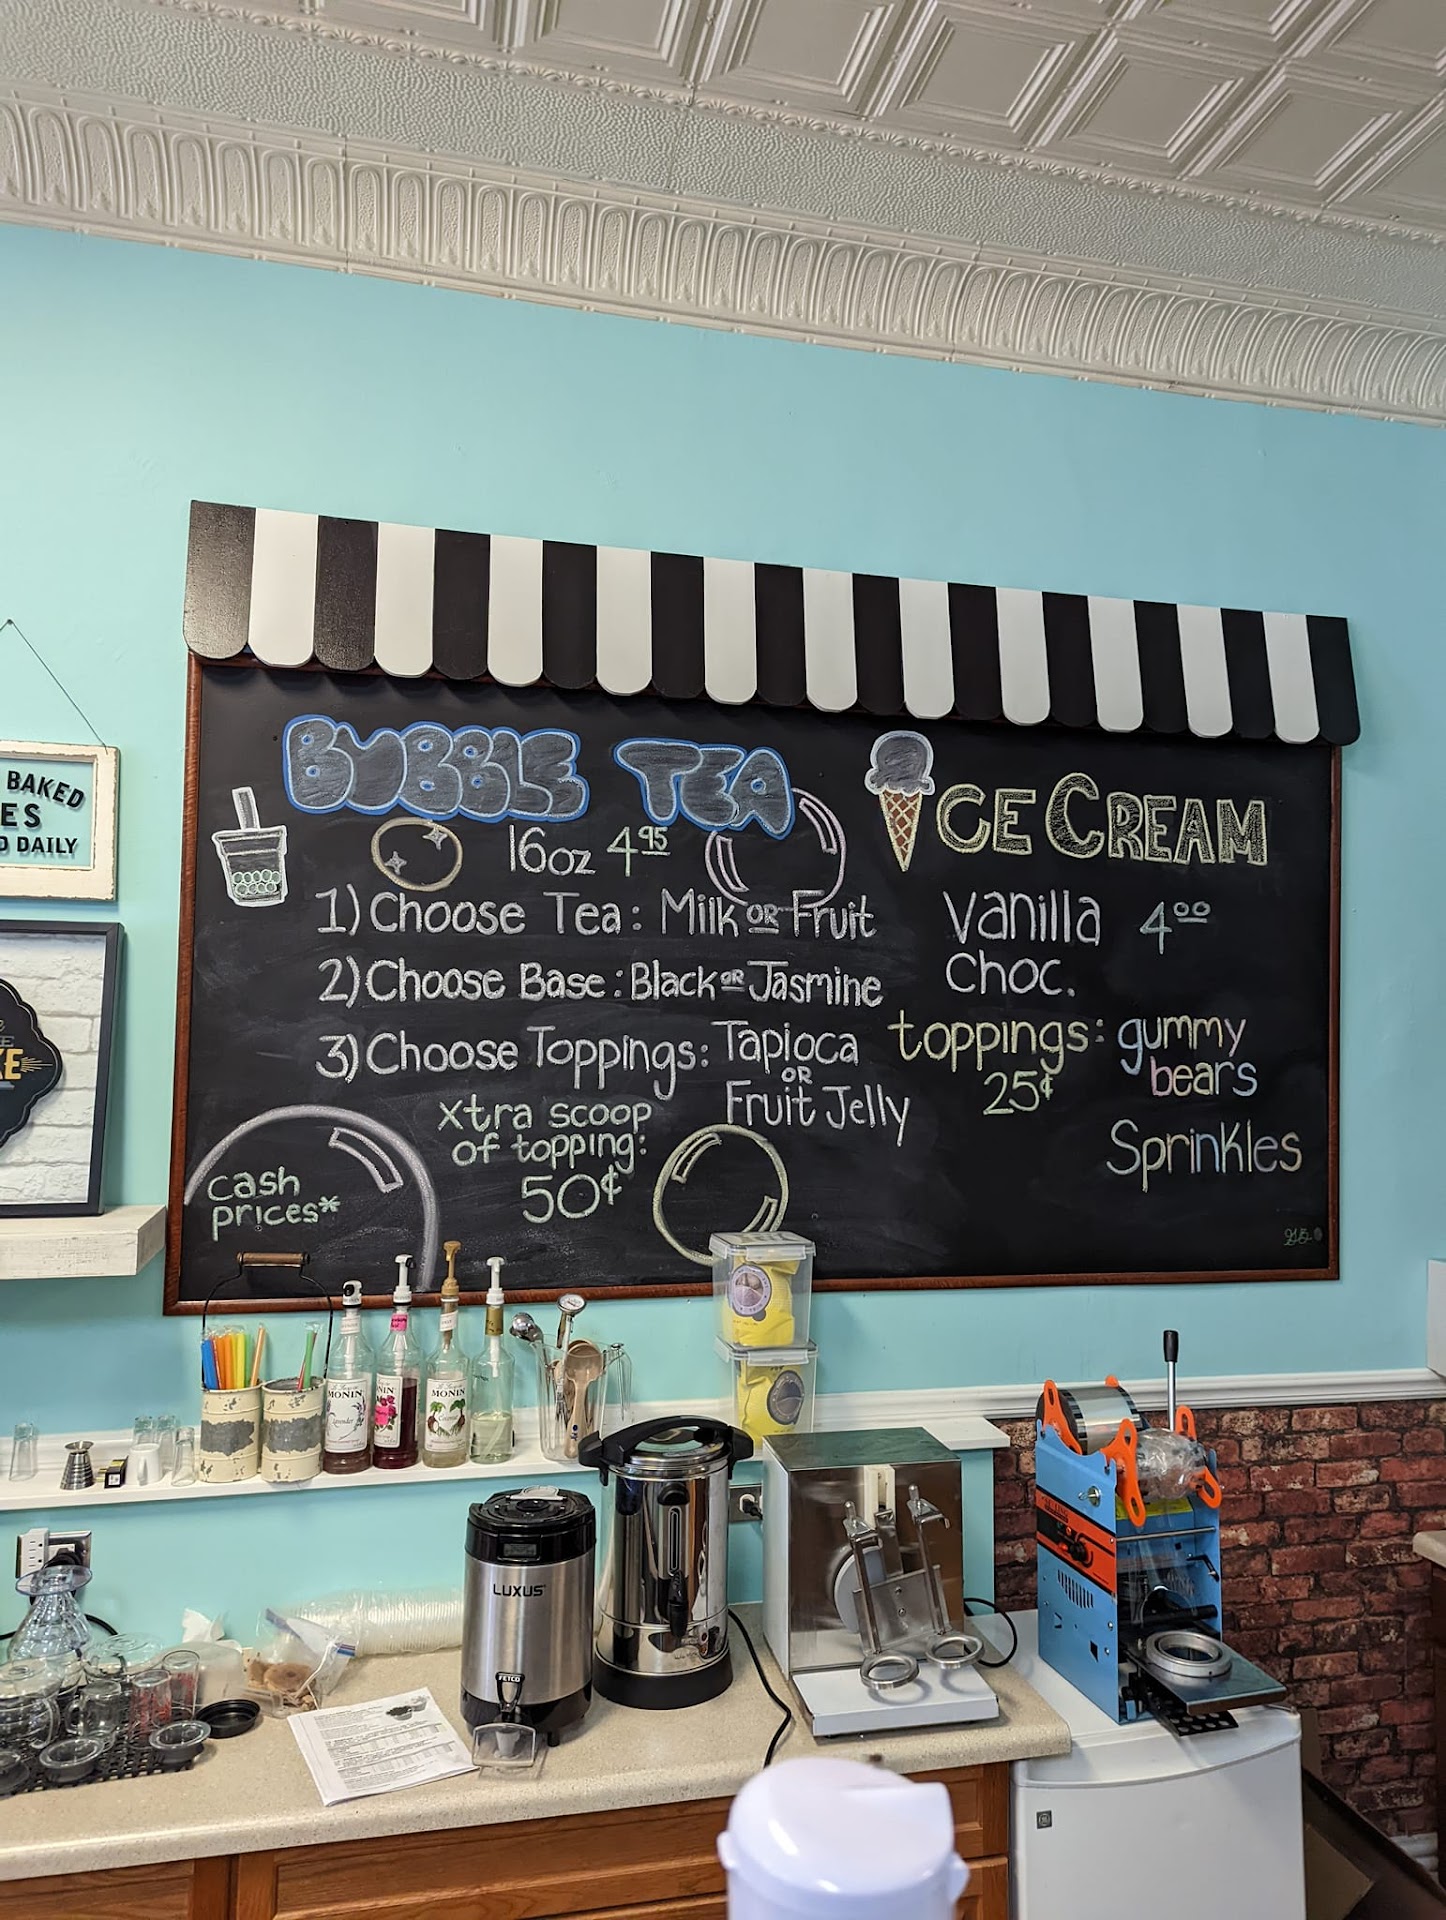 BAKED
ES
D DAILY
KE
BUBBLE TEA
16oz 4.95
1) Choose Tea: Milk OR Fruit
2) Choose Base: Black OR Jasmine
3) Choose Toppings: Tapioca
OR
Fruit Jelly
xtra scoop
of topping:
50¢
cash
prices*
ICE CREAM
Vanilla 4.00
Choc.
toppings: gummy
25¢ bears
Sprinkles
MONIN
MONIN
MONIN
LUXUS
FETCO